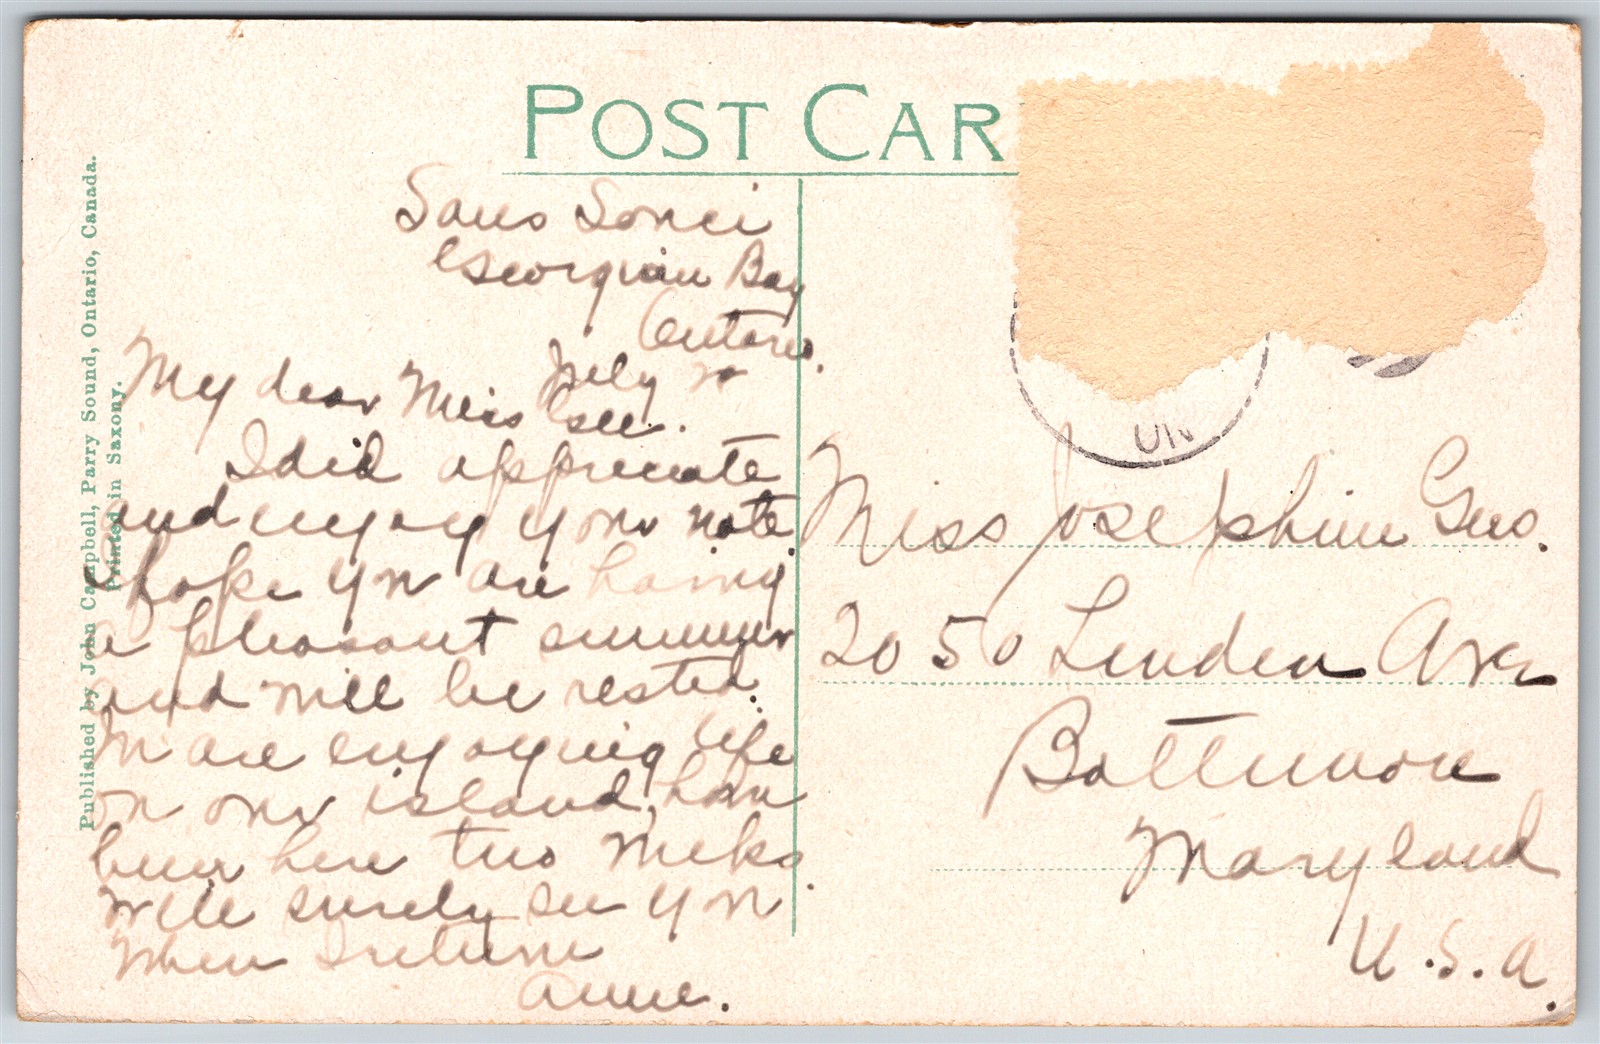 POST CAR
Published by John Campbell, Parry Sound, Ontario, Canada.
Printed in Saxony.
Sans Souci
Georgian Bay
Ontario.
July 20
My dear Miss Gee.
I did appreciate
and enjoy your note.
I hope you are having
a pleasant summer
and will be rested.
We are enjoying life
on our island, have
been here two weeks.
Will surely see you
when I return
Anne.
ON
Miss Josephine Gees.
2050 Linden Ave
Baltimore
Maryland
U.S.A.